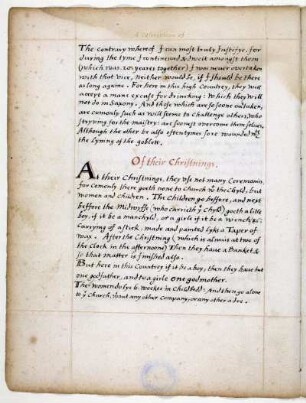 The contrary whereof I can most truly Justifye, for
during the tyme I contineued & dwelt amongst them
(which was 20 yeares together) I was never overtaken
with that vice, neither would be, if I should be there
as long againe. For there in this high Countrey, they will
accept a mans excuse for drinking: Which they will
not do in Saxony. And those which are so sone overtaken,
are comonly such as will seeme to challenge others, who
stryving for the maistry are soonest overcome them selves,
Although the other be also oftentymes sore wounded wth
the lyming of the goblett.
Of their Christnings.
At their Christnings, they use not many Ceremonies,
for comonly there goeth none to Church wth the Chyld, but
women and children. The Children go before, and next
before the Midwyffe (who carrieth ye Chyld) goeth a litle
boy, if it be a manchyld, or a girle if it be a wenche,
Carrying of a stick made and painted lyke a Taper of
wax. After the Christning (which is almost at two of
the Clock in the afternoone) Then they have a Banket &
so that matter is finished also.
But here in this Countrey if it be a boy, then they have but
one godfather, and to a girle one godmother.
The women do lye 6. weekes in Childbed: And then go alone
to ye Church, without any other Company, or any other adoe.